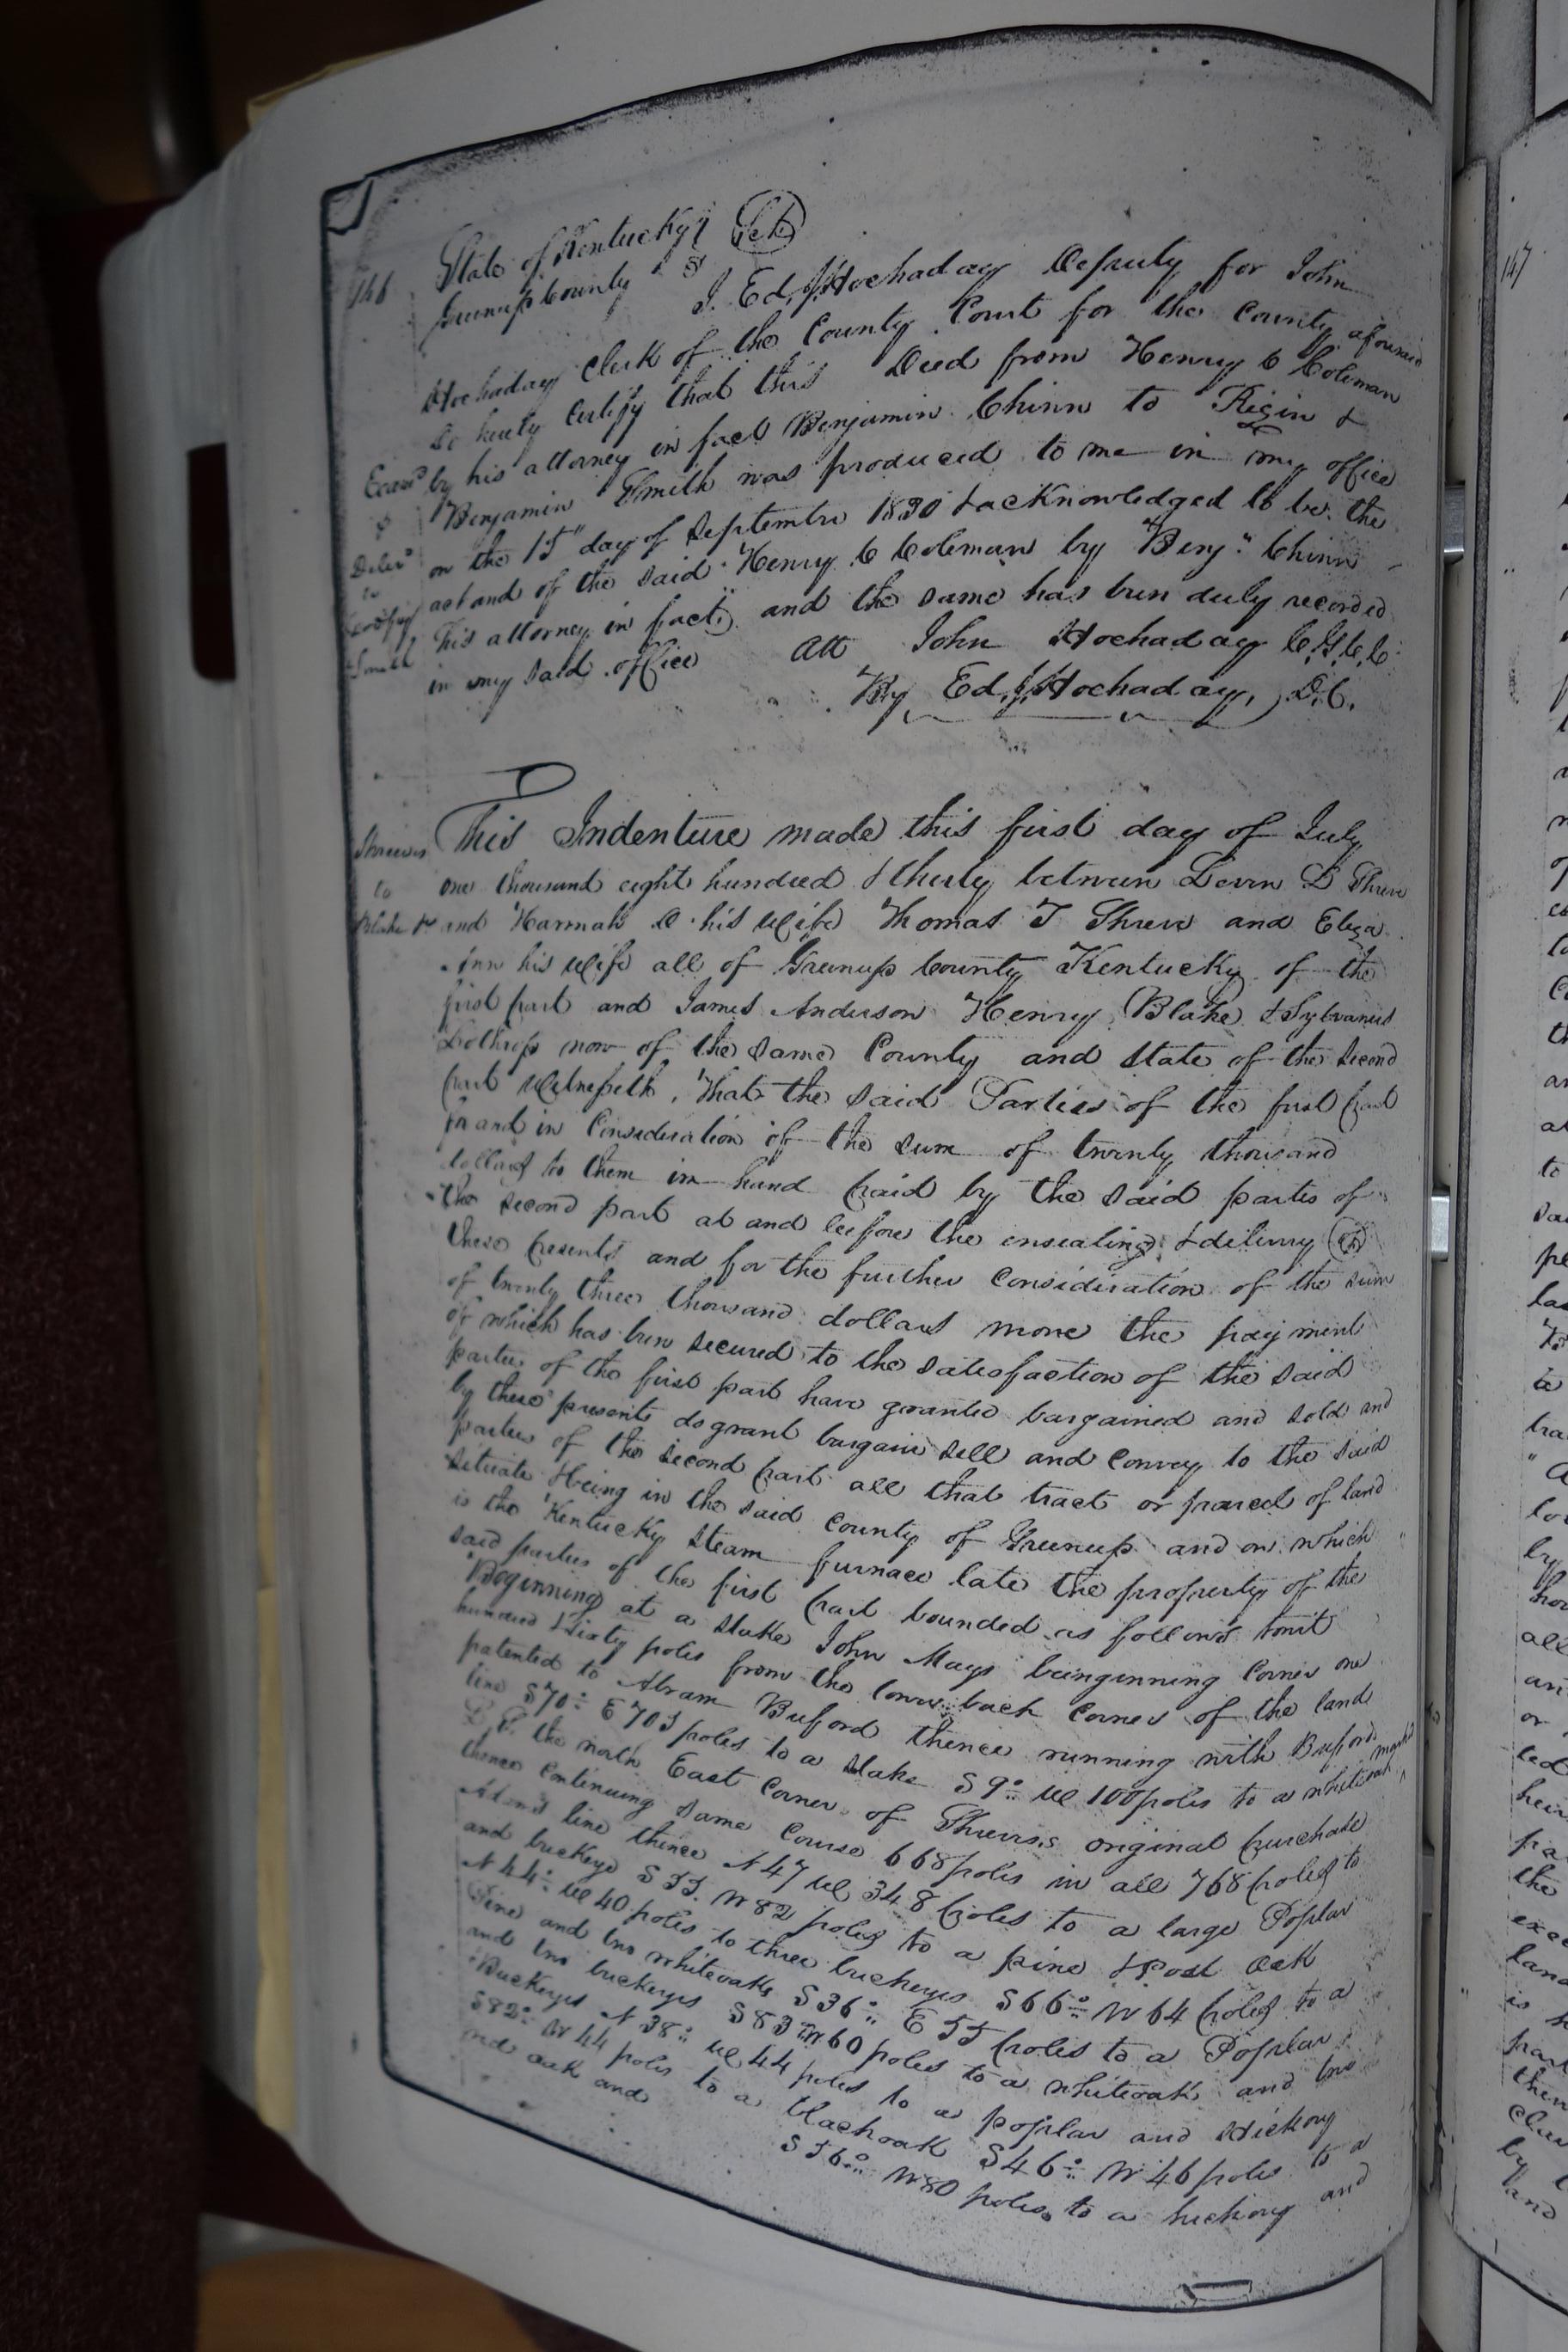 146
State of Kentucky } Sct
Greenup County
I. Ed. Hockaday Deputy for John
Hockaday Clerk of the County Court for the County aforesaid
do hereby Certify that this Deed from Henry C Coleman
by his attorney in fact Benjamin Chinn to Rezin &
Benjamin Smith was produced to me in my office
on the 15th day of September 1830 & acknowledged to be the
act and of the said Henry C Coleman by Benj. Chinn
his attorney in fact, and the same has been duly recorded
in my said office
Att John Hockaday C.G.C.C.
By Ed. Hockaday, D.C.
Examd
&
Delivd
to
Smith
Shreves
to
Blake &c
This Indenture made this first day of July
one thousand eight hundred & thirty between Levin L Shreve
and Hannah D. his Wife Thomas T Shreve and Eliza
Ann his Wife all of Greenup County Kentucky of the
first part and James Anderson Henry Blake & Sylvanus
Lothrop now of the same County and State of the second
part Witnesseth, That the said Parties of the first part
for and in Consideration of the sum of twenty thousand
dollars to them in hand paid by the said parties of
the second part at and before the ensealing & delivery of
these presents and for the further Consideration of the sum
of twenty three thousand dollars more the payment
of which has been secured to the satisfaction of the said
parties of the first part have granted bargained and sold and
by these presents do grant bargain sell and convey to the said
parties of the second part all that tract or parcel of land
situate & being in the said County of Greenup and on which
is the Kentucky Steam furnace late the property of the
said parties of the first part bounded as follows towit
Beginning at a stake John Mays beinginning Corner one
hundred & sixty poles from the lower back corner of the land
patented to Abram Buford thence running with Bufords
line S70° E 705 poles to a stake S9° W 100 poles to a whiteoak marked
L.S. the north East Corner of Shreves's original purchase
thence Continuing same Course 668 poles in all 768 poles to
line thence N47 W 348 poles to a large Poplar
and buckeye S55. W82 poles to a pine & Post Oak
N44° W 40 poles to three buckeyes S66° W 64 poles to a
Pine and two whiteoaks S36° E 55 poles to a Poplar
and two buckeyes S83° W60 poles to a whiteoak and two
Buckeyes N38° W 44 poles to a poplar and Hickory
S82° W 44 poles to a blackoak S46° W 46 poles to a
red oak and S56° W80 poles to a hickory and